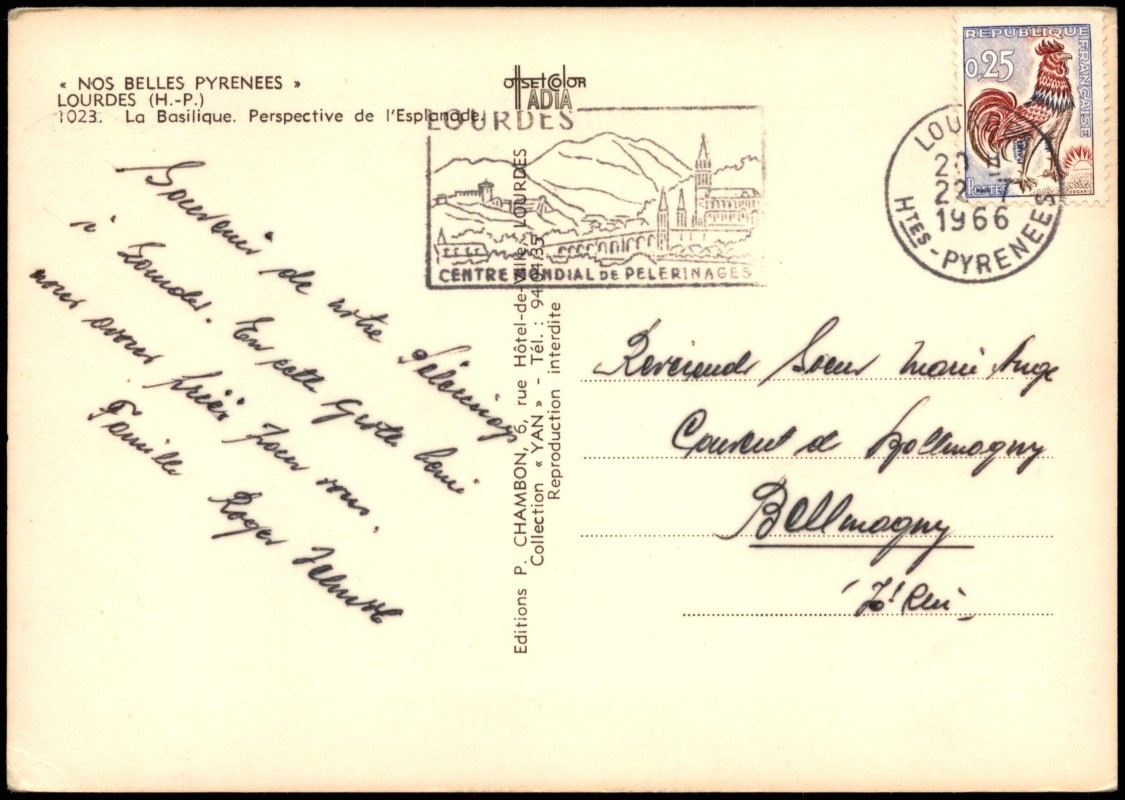 « NOS BELLES PYRENEES »
LOURDES (H.-P.)
1023. La Basilique. Perspective de l'Esplanade.
OFFSETCOLOR
IADIA
LOURDES
CENTRE MONDIAL DE PELERINAGES
REPUBLIQUE FRANÇAISE
0,25
POSTES
LOU
20 H
22 - 7
1966
HTES-PYRENEES
Souvenir de notre Pélérinage
à Lourdes. En cette Grotte bénie
nous avons priés pour vous.
Famille Roger
Editions P. CHAMBON, 6, rue Hôtel-de-Ville, LOURDES
Collection « YAN » - Tél. : 94.04.35
Reproduction interdite
Révérende Soeur Marie Ange
Couvent de Bellmagny
Bellmagny